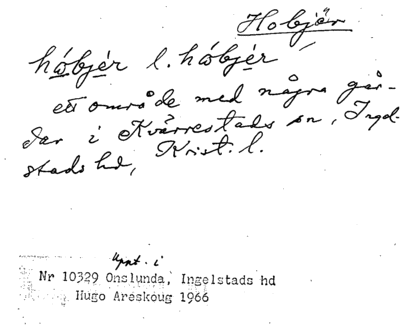 Hobjär
håbjér l. håbjér
ett område med några går-
dar i Kvärrestads sn, Ingel-
stads hd, Krist. l.
Uppt. i
Nr 10329 Onslunda, Ingelstads hd
Hugo Areskoug 1966